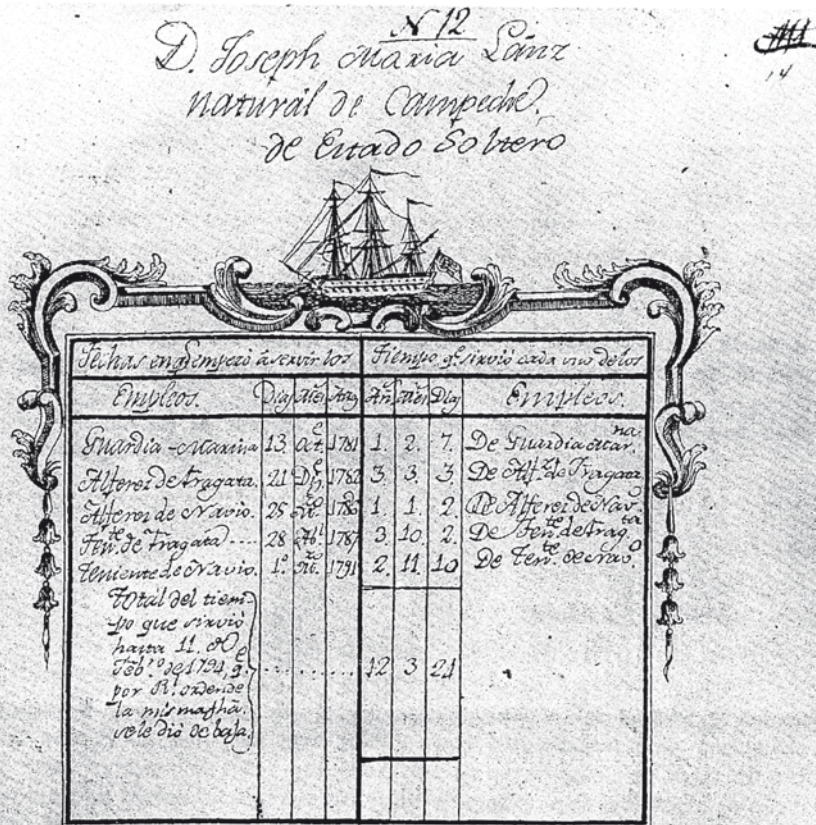 N 12
D. Joseph Maria Lanz
natural de Campeche,
de Estado Soltero
14
Fechas en q.e empezó á servir los | Tiempo q.e sirvió cada uno de los
Empleos. | Dias | Mes | Añs | Añ.s | Mes | Dias | Empleos.
Guardia-Marina | 13. | Oct.e | 1781 | 1. | 2. | 7. | De Guardia Mar.na
Alferez de Fragata. | 21 | Dz.e | 1782 | 3. | 3. | 3. | De Alf.z de Fragata
Alferez de Navio. | 1. | 1. | 2. | De Alferez de Nav.o
Ten.te de Fragata | 28 | Ab.l | 1787 | 3. | 10. | 2. | De Ten.te de Frag.ta
Teniente de Navio. | 1.o | 1791 | 2. | 11. | 10 | De Ten.te de Nav.o
Total del tiem-
po que sirvió
hasta 11. de
Feb.ro de 1794, q.e
por R.l orden de
la misma fhã.
se le dió de baja. | 12 | 3 | 24